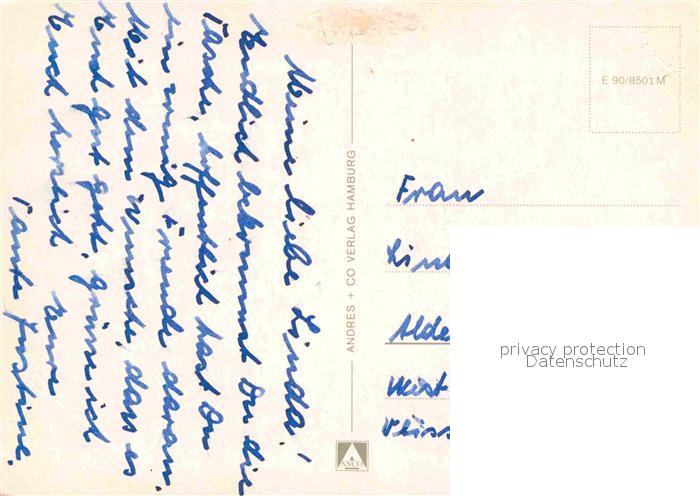 Meine liebe Linda!
Endlich bekommst Du die
Tasche, hoffentlich hast Du
ein wenig Freude daran.
Mit dem Wunsche, dass es
Euch gut geht, grüsse ich
Euch herzlich Eure
Tante Justine.
ANDRES + CO VERLAG HAMBURG
ANCO
E 90/8501 M
Frau
Alde
privacy protection
Datenschutz